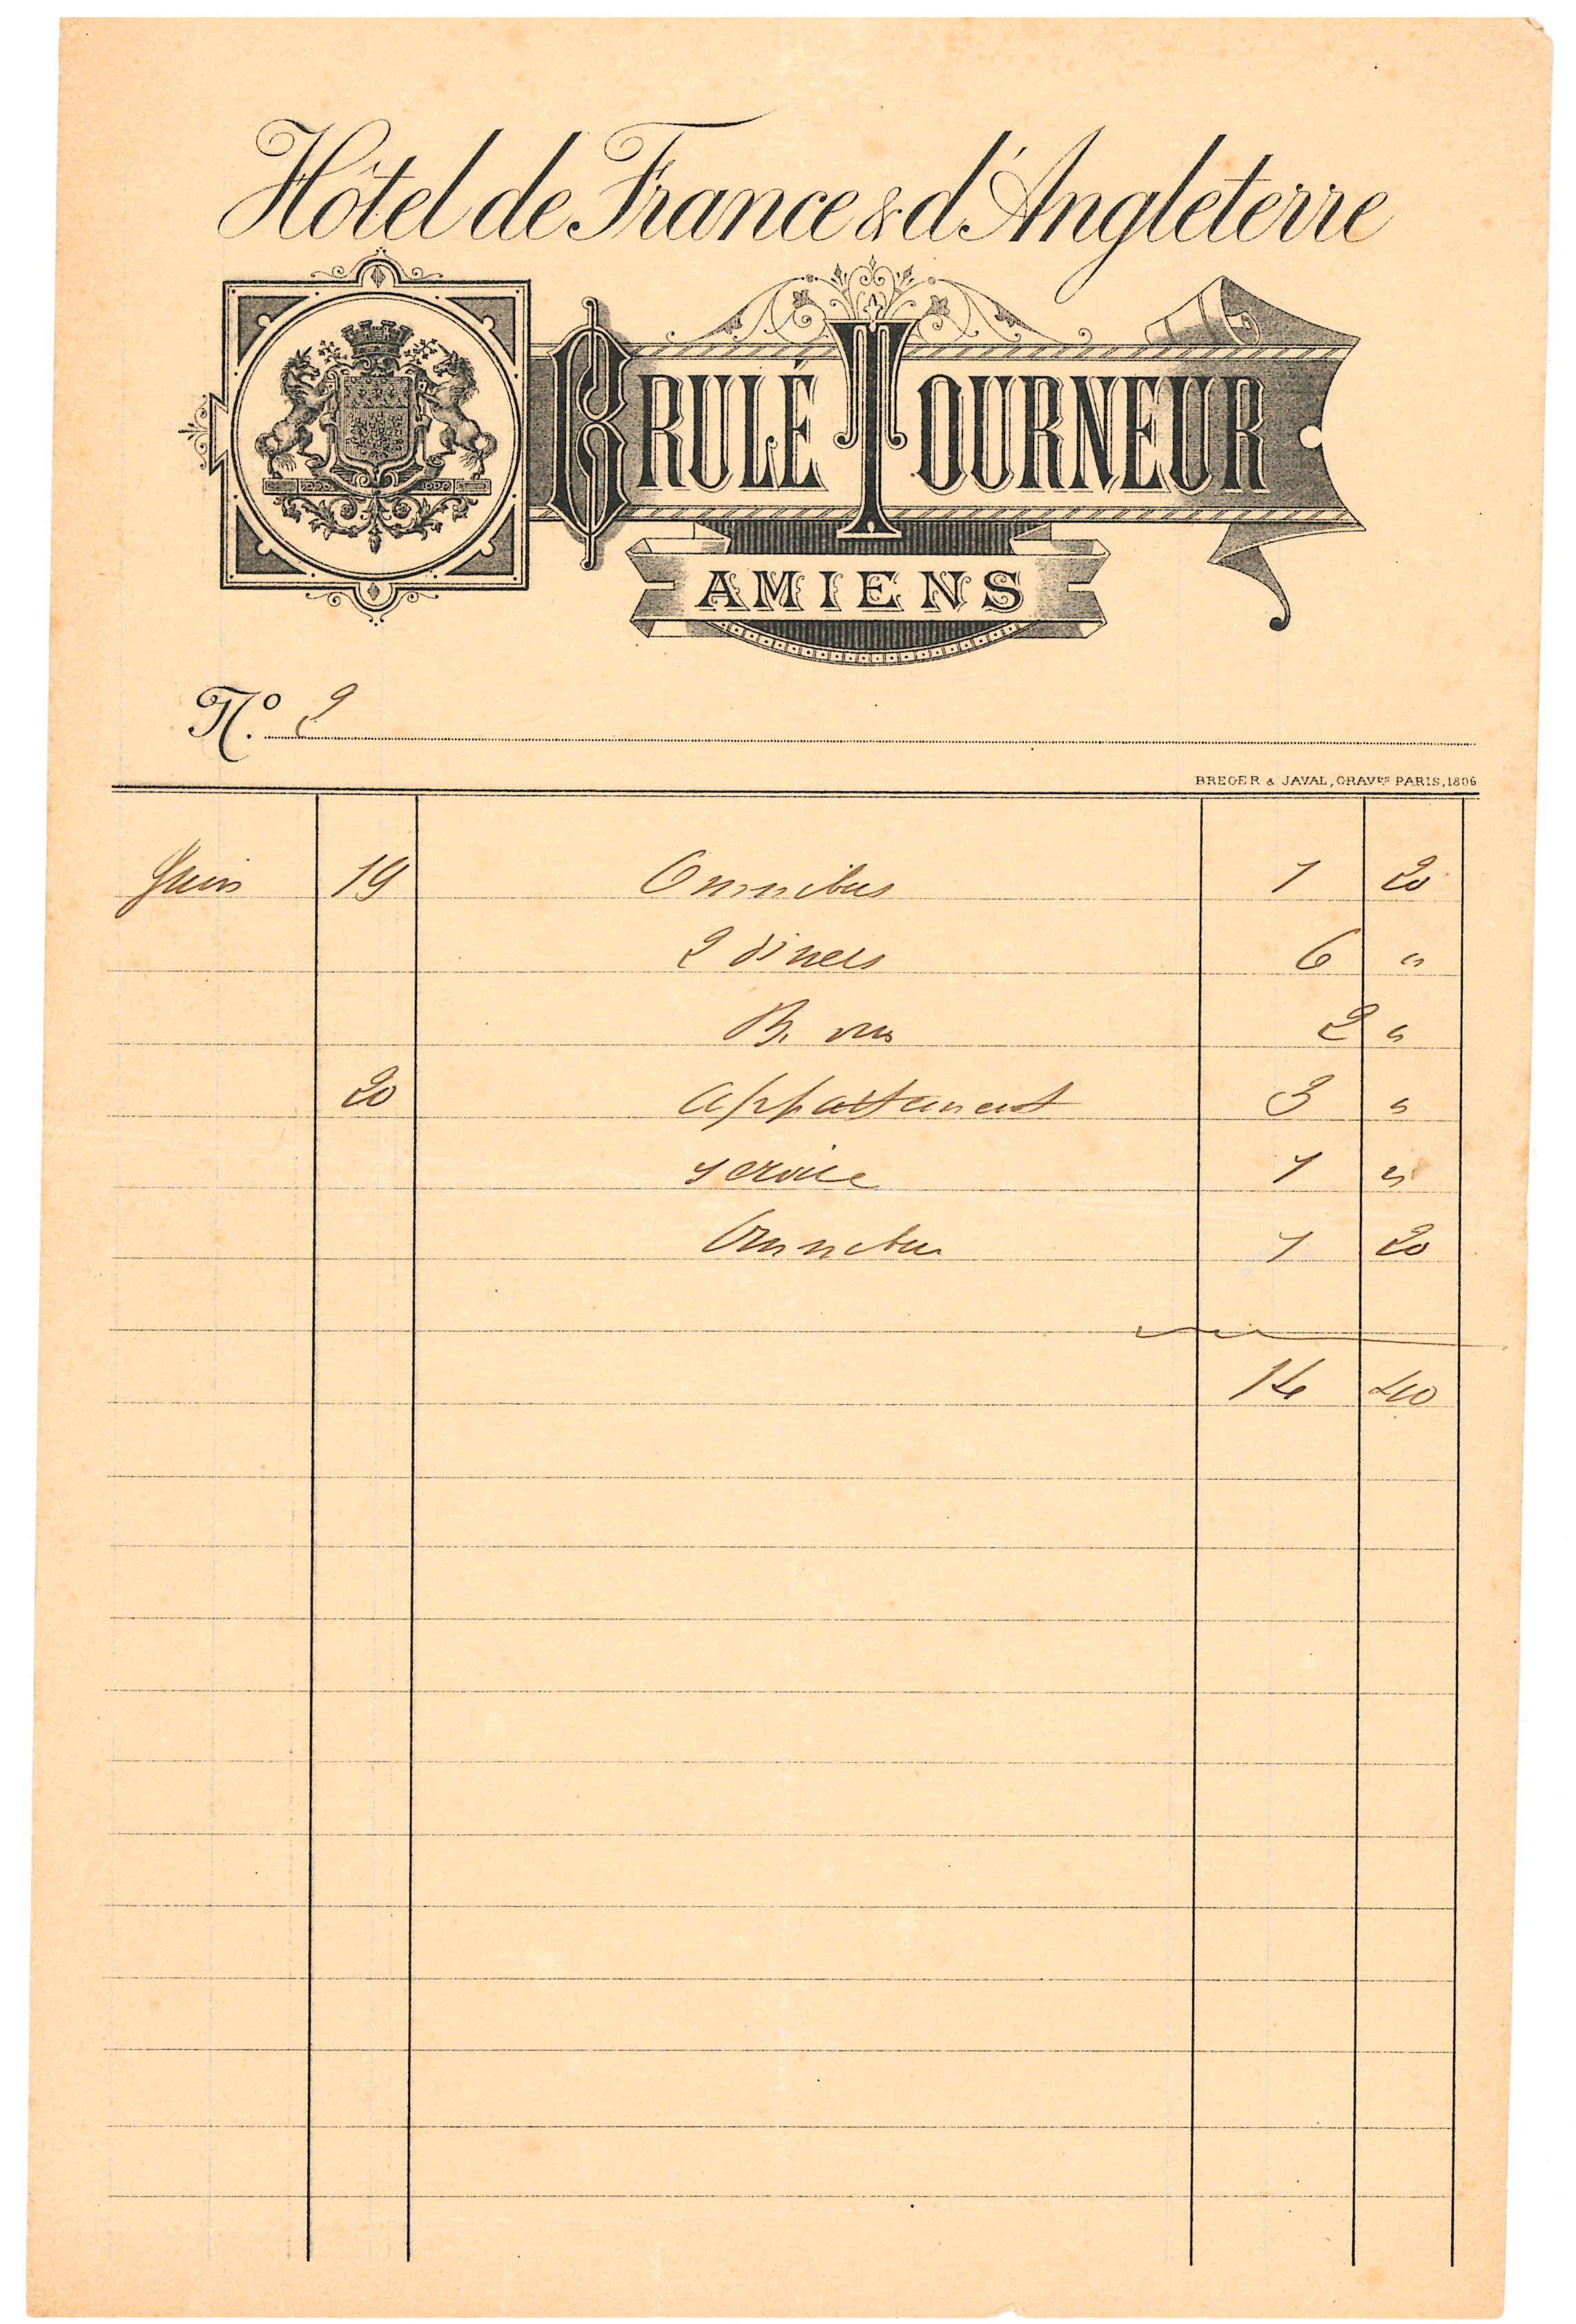 Hôtel de France & d'Angleterre
BRULÉ TOURNEUR
AMIENS
N.º 2
BREGER & JAVAL, GRAVRS PARIS, 1806
Juin 19 Omnibus 1 20
2 diners 6 "
B. vin 2 "
20 appartement 3 "
service 1 "
Omnibus 1 20
14 40